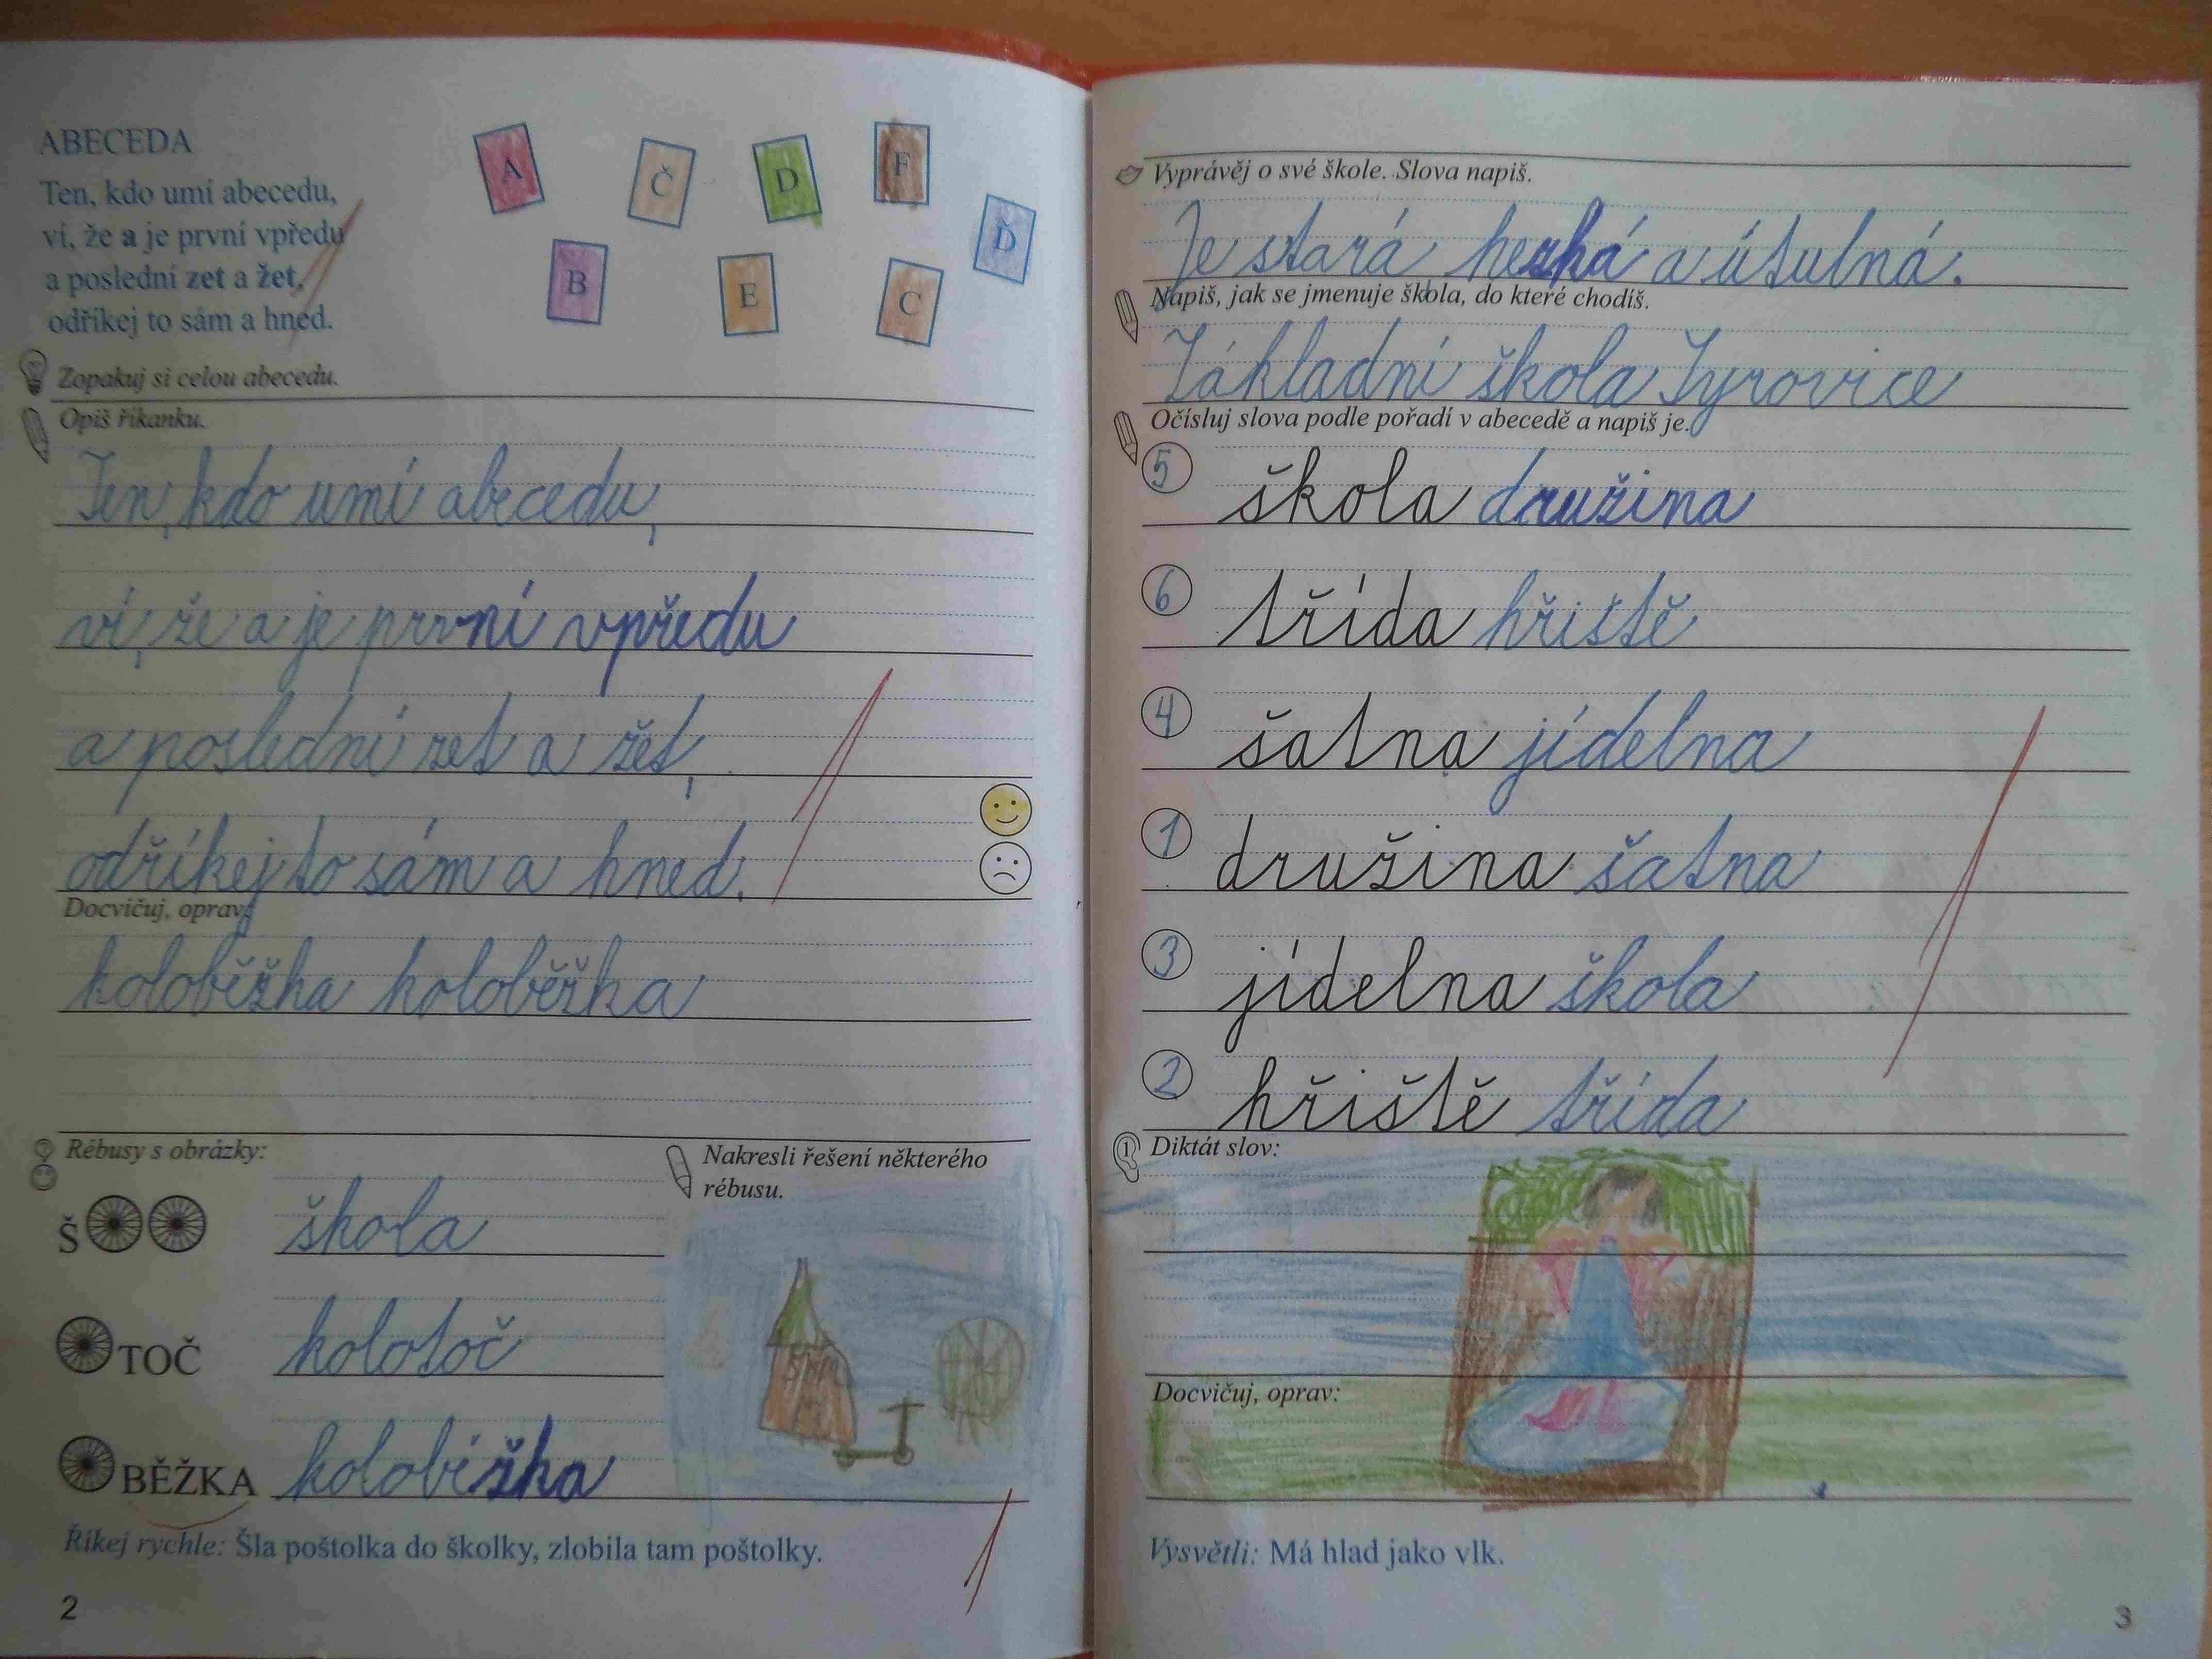 ABECEDA
Ten, kdo umí abecedu,
ví, že a je první vpředu
a poslední zet a žet,
odříkej to sám a hned.
A Č D F
B E C Ď
Zopakuj si celou abecedu.
Opiš říkanku.
Ten, kdo umí abecedu,
ví, že a je první vpředu
a poslední zet a žet,
odříkej to sám a hned.
Docvičuj, oprav:
koloběžka koloběžka
Rébusy s obrázky:
Nakresli řešení některého
rébusu.
Š
škola
TOČ
kolotoč
BĚŽKA
kolobížka
Říkej rychle: Šla poštolka do školky, zlobila tam poštolky.
2
Vyprávěj o své škole. Slova napiš.
Je stará, hezká a útulná.
Napiš, jak se jmenuje škola, do které chodíš.
Základní škola Syrovice
Očísluj slova podle pořadí v abecedě a napiš je.
5 škola družina
6 třída hřiště
4 šatna jídelna
1 družina šatna
3 jídelna škola
2 hřiště třída
1 Diktát slov:
Docvičuj, oprav:
Vysvětli: Má hlad jako vlk.
3